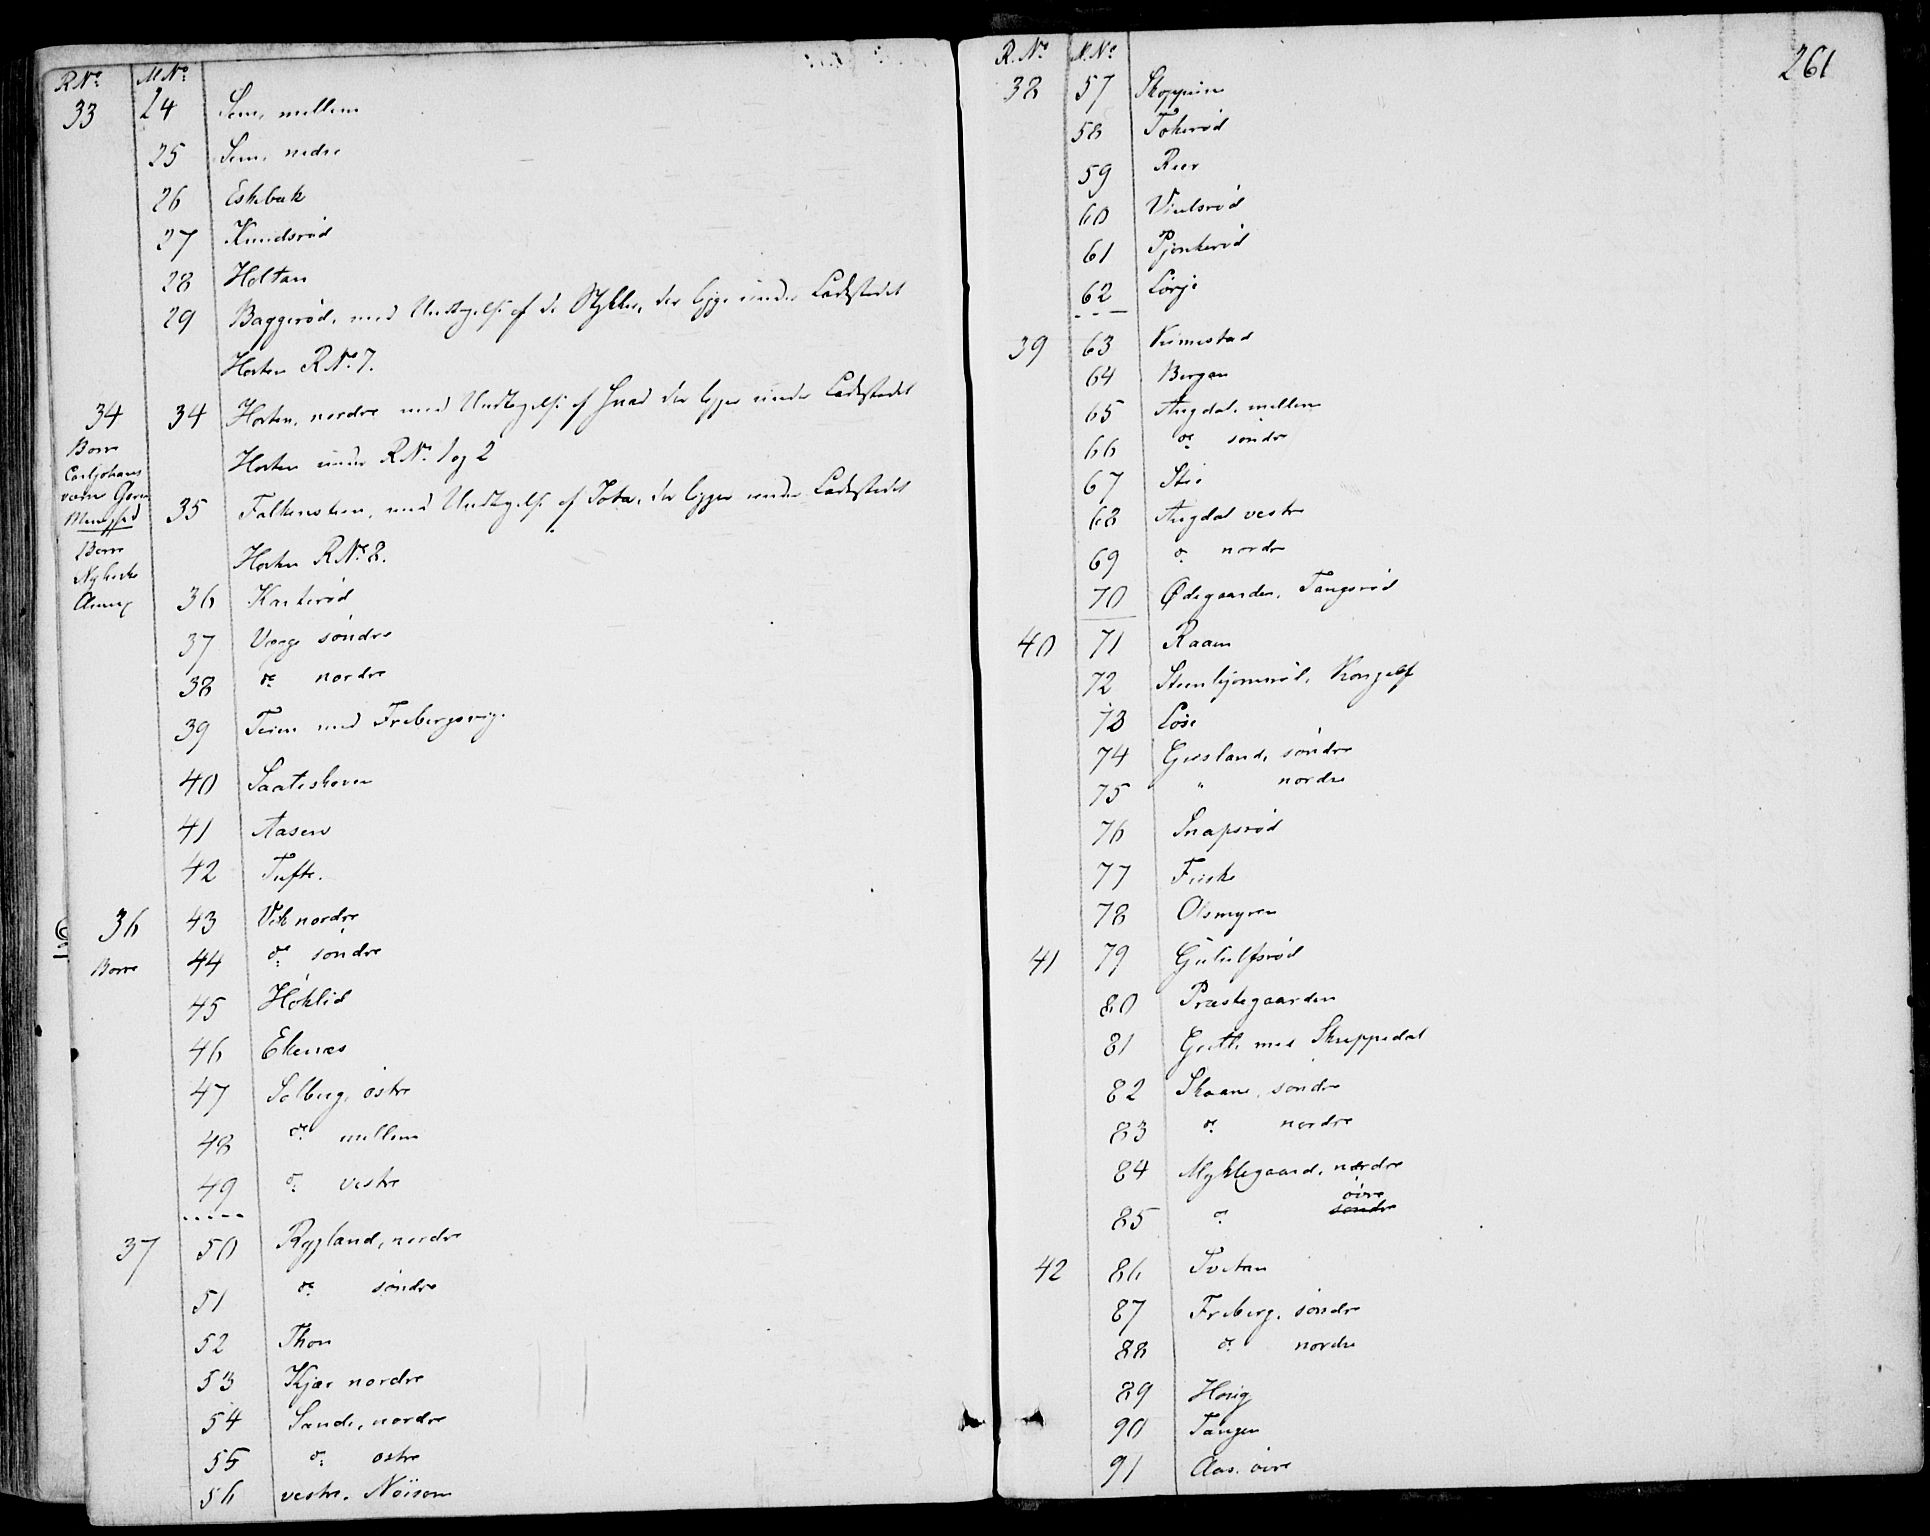 R.No. M.No.
33 24 Sem, mellem
25 Sem, nedre
26 Eskebæk
27 Knudsrød
28 Holtan
29 Baggerød, med Undtagelse af de Stykker, der ligge under Ladestedet
Horten R.No. 7.
34 34 Horten, nordre med Undtagelse af hvad der ligger under Ladestedet
Borre
Horten under R.No. 1 og 2
Carljohans
værn Garn
Menighed
35 Falkensteen, med Undtagelse af Tota, der ligger under Ladestedet
Borre
Horten R.No. 8.
Nykirke
36 Karterød
37 Vorge søndre
38 do nordre
39 Teien med Frebergsvig.
40 Saateskoven
41 Aasen
42 Tufte.
36 43 Vik nordre
Borre 44 do søndre
45 Høklid
46 Ekenæs
47 Solberg, østre
48 do mellem
49 do vestre
37 50 Rygland, nordre
51 do søndre
52 Thon
53 Kjær nordre
54 Sande, nordre
55 do østre
56 vestre. Nöisom
261
R.No. M.No.
38 57 Skoppum
58 Tokerød
59 Reer
60 Vinlsrød
61 Pjonkerød
62 Lørje
39 63 Kimestad
64 Bergan
65 Augdal, mellem
66 do søndre
67 Stie
68 Augdal vestre
69 do nordre
70 Ødegaarden, Tangsrød
40 71 Raaen
72 Steenbjørnrød, Kongelf
73 Løse
74 Gresland, søndre
75 " nordre
76 Snapsrød
77 Fuske
78 Olsmyren
41 79 Gululfsrød
80 Præstegaarden
81 Grette med Skreppedal
82 Skaane, søndre
83 do nordre
84 Myklegaard, nordre
øvre
85 do søndre
42 86 Tveten
87 Freberg, søndre
88 do nordre
89 Horig
90 Tangen
91 Aas, øvre